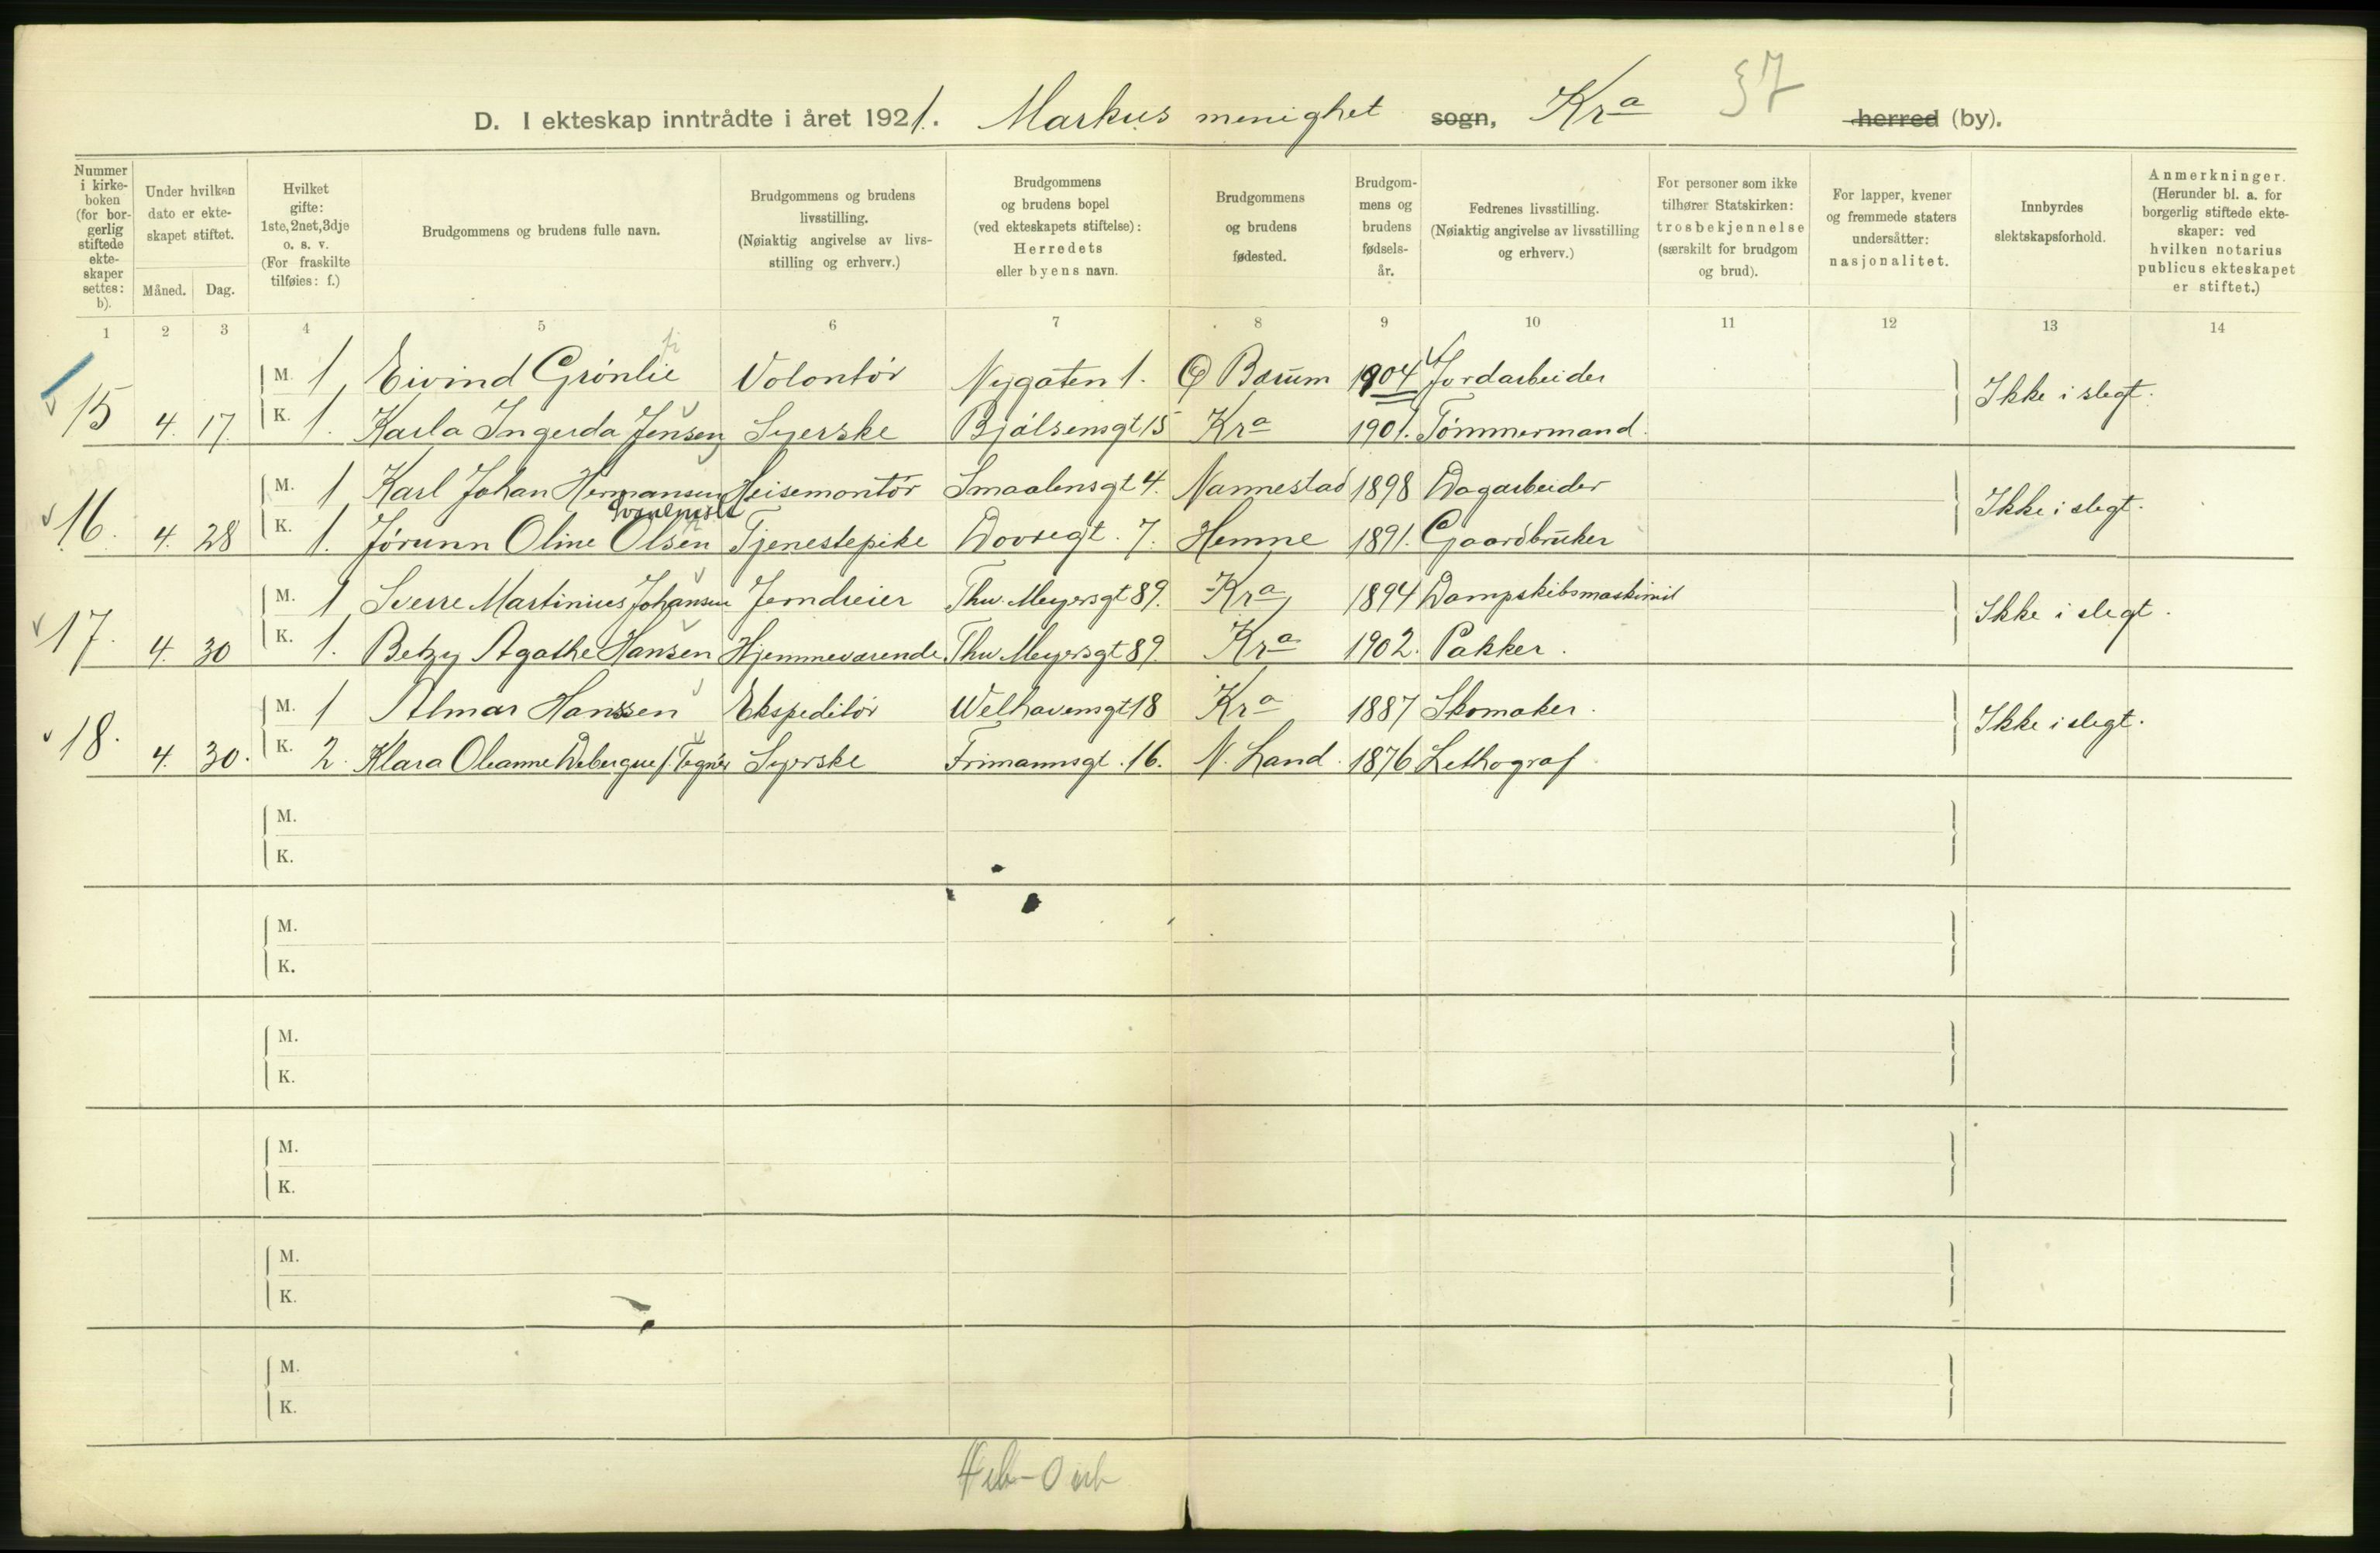 D. I ekteskap inntrådte i året 1921. Markus menighet sogn, Kra 37 herred (by).
Nummer i kirke- boken (for bor- gerlig stiftede ekte- skaper settes: b).
Under hvilken dato er ekte- skapet stiftet.
Måned. Dag.
Hvilket gifte: 1ste, 2net, 3dje o. s. v. (For fraskilte tilføies: f.)
Brudgommens og brudens fulle navn.
Brudgommens og brudens livsstilling. (Nøiaktig angivelse av livs- stilling og erhverv.)
Brudgommens og brudens bopel (ved ekteskapets stiftelse): Herredets eller byens navn.
Brudgommens og brudens fødested.
Brudgom- mens og brudens fødsels- år.
Fedrenes livsstilling. (Nøiaktig angivelse av livsstilling og erhverv.)
For personer som ikke tilhører Statskirken: trosbekjennelse (særskilt for brudgom og brud).
For lapper, kvener og fremmede staters undersåtter: nasjonalitet.
Innbyrdes slektskapsforhold.
Anmerkninger. (Herunder bl. a. for borgerlig stiftede ekte- skaper: ved hvilken notarius publicus ekteskapet er stiftet.)
1 2 3 4 5 6 7 8 9 10 11 12 13 14
M. 1 Eivind Grönlie Volontör Nygaten 1. Bærum 1904 Jordarbeider
15 4. 17. K. 1. Karla Ingerda Jensen Syerske Bjølsensgt 15 Kra 1901. Tömmermand. Ikke i slegt.
M. 1 Karl Johan Hermansen Heisemontör Smaalensgt 4. Nannestad 1898 Dagarbeider
16. 4. 28 K. 1. Jörunn Oline Olsen Tjenestepike Dovregt. 7. Hemne 1891. Gaardbruker Ikke i slegt.
M. 1 Sverre Martinius Johansen Jerndreier Thv. Meyersgt 89. Kra 1894 Dampskibsmaskinist
17. 4. 30 K. 1. Betzy Agathe Hansen Hjemmeværende Thv. Meyersgt 89. Kra 1902. Pakker. Ikke i slegt.
M. 1 Almar Hanssen Ekspeditör Welhavensgt 18 Kra 1887 Skomaker.
18. 4. 30. K. 2. Klara Oleanne f. Tegnér Syerske Frimannsgt. 16. N. Land. 1876 Lethograf Ikke i slegt.
M.
K.
M.
K.
M.
K.
M.
K.
M.
K.
M.
K.